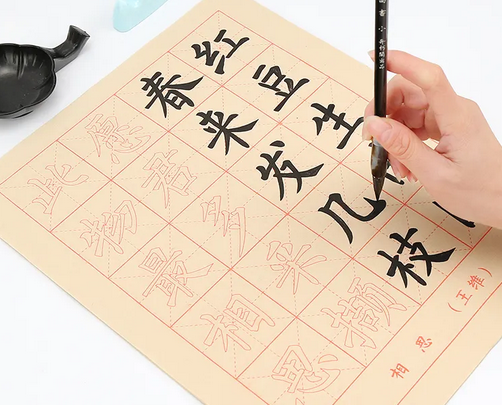 相思（王维）
红豆生
春来发几枝
愿君多采撷
此物最相思